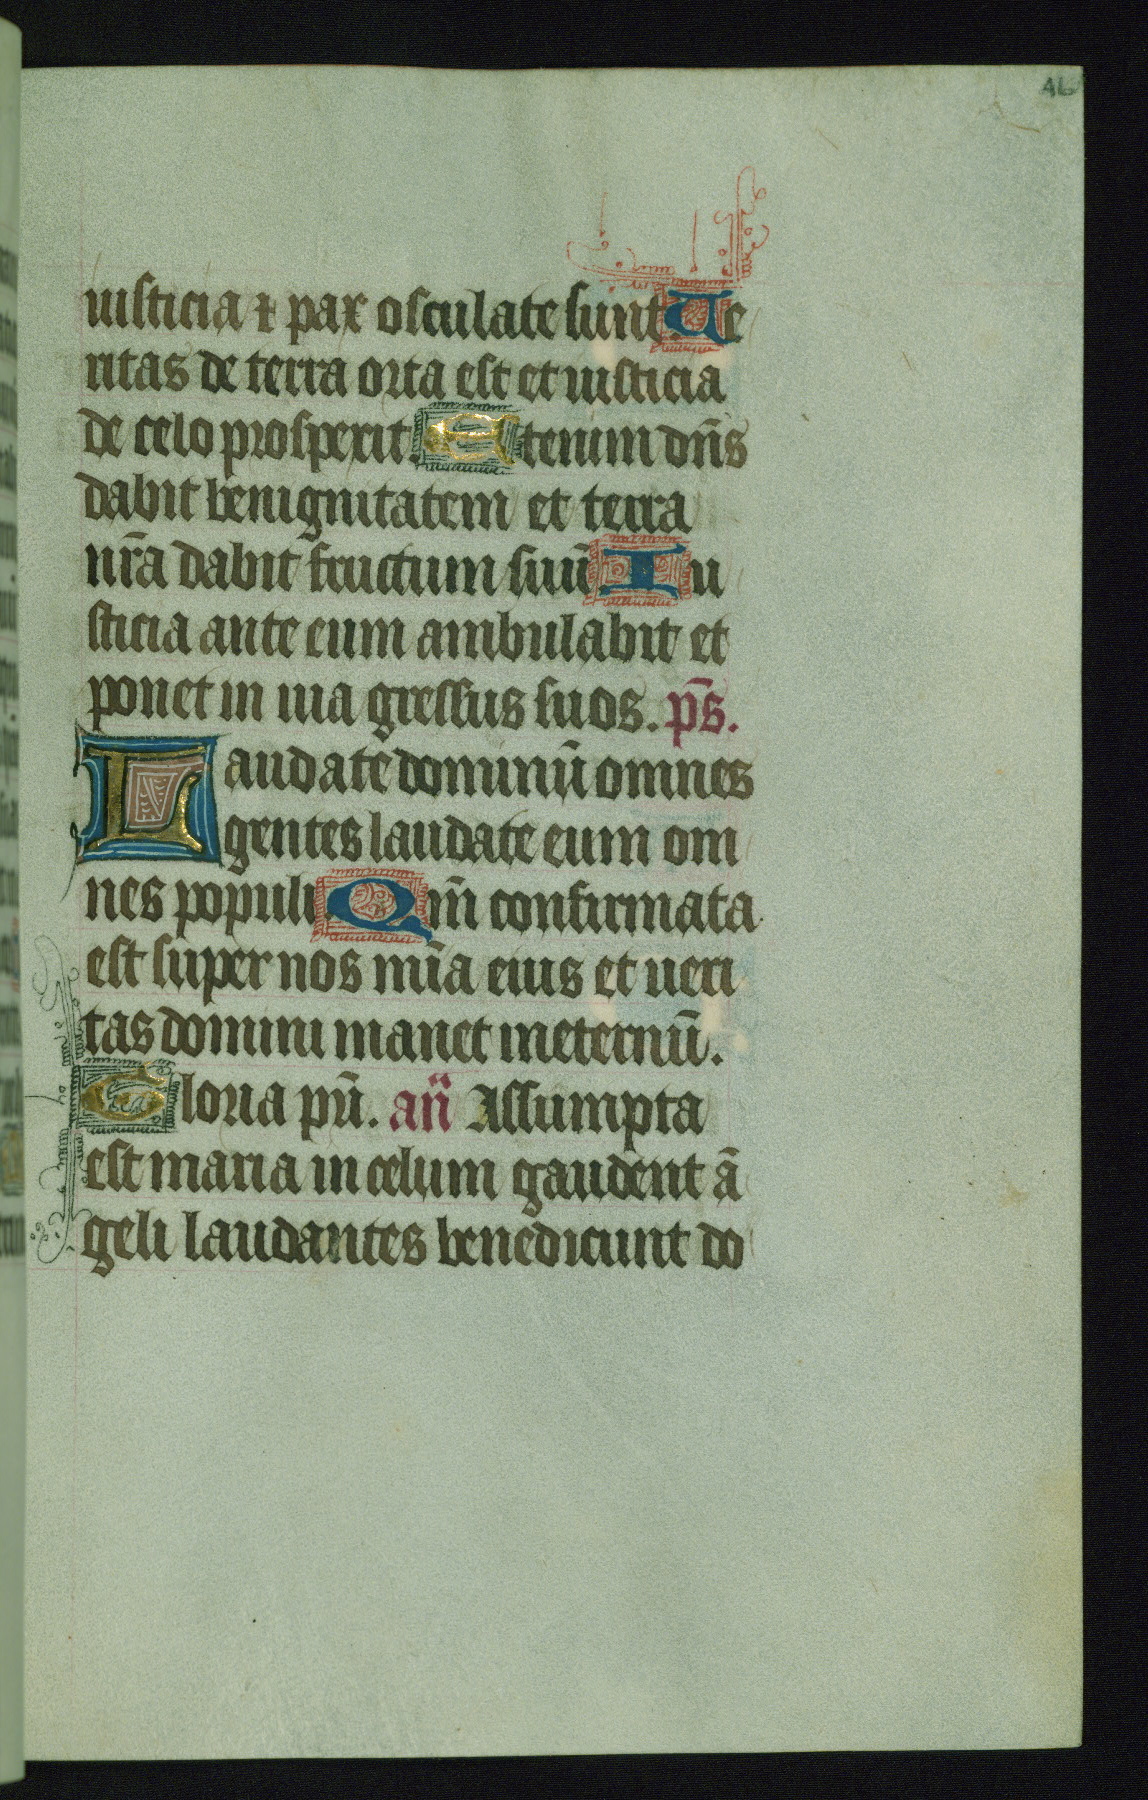 iusticia ⁊ pax osculate sunt. Ue
ritas de terra orta est et iusticia
de celo prosperit. Etenim dn̄s
dabit benignitatem et terra
nr̄a dabit fructum suū Iu
sticia ante eum ambulabit et
ponet in uia gressus suos. ps̄.
Laudate dominū omnes
gentes laudate eum om
nes populi. Qm̄ confirmata
est super nos mīa eius et ueri
tas domini manet ineternū.
Gloria pr̄i. an̄ Assumpta
est maria in celum gaudent ā
geli laudantes benedicunt do